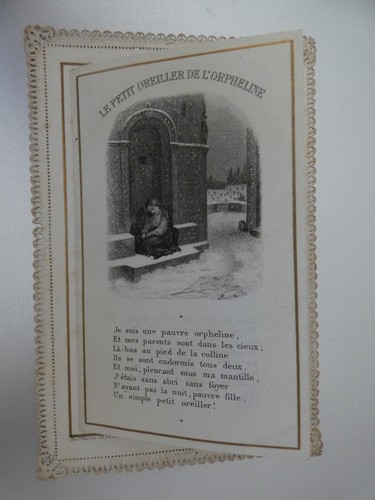 LE PETIT OREILLER DE L'ORPHELINE
Je suis une pauvre orpheline,
Et mes parents sont dans les cieux;
Là-bas au pied de la colline
Ils se sont endormis tous deux.
Et moi, pleurant sous ma mantille,
J'étais sans abri sans foyer
N'ayant pas la nuit, pauvre fille,
Un simple petit oreiller!